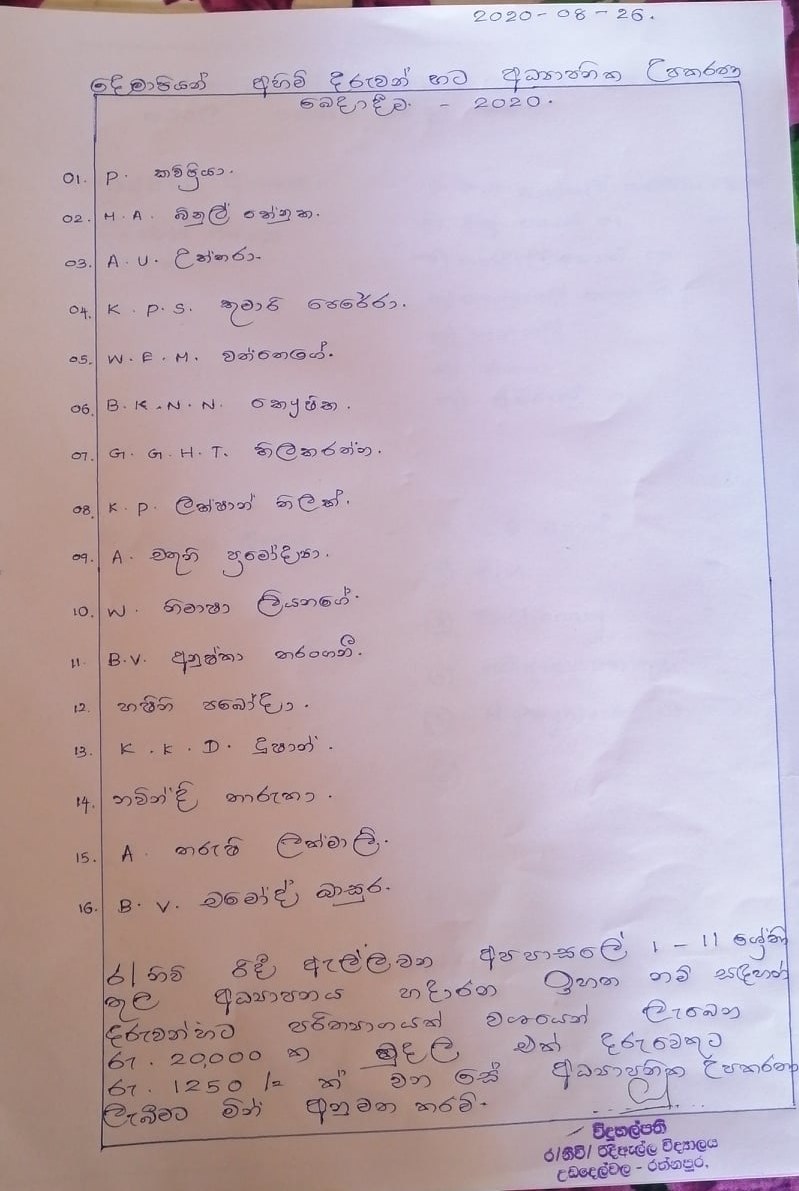 2020-08-26.
දෙමාපියන් අහිමි දරුවන් හට අධ්‍යාපනික උපකරණ
බෙදාදීම. - 2020.
01. P. කවිප්‍රියා.
02. H.A. බිනුල් තේනුක.
03. A.U. උත්තරා.
04. K.P.S. කුමාරි පෙරේරා.
05. W.E.M. වත්තෙගේ.
06. B.K.N.N. කෞෂික.
07. G.G.H.T. තිලකරත්න.
08. K.P. ලක්ෂාන් තිලක්.
09. A. චතුනි ප්‍රමෝද්‍යා.
10. W. නිමාෂා ලියනගේ.
11. B.V. අනුෂ්කා තරංගනී.
12. හෂිනි පබෝද්‍යා.
13. K.K.D. දුෂාන්.
14. නවින්දි තාරුකා.
15. A. තරුෂි ලක්මාලි.
16. B.V. චමෝද් භාසුර.
ර/නිවි රිදී ඇල්ල වන අප පාසලේ 1-11 ශ්‍රේණි
තුල අධ්‍යාපනය හදාරන ඉහත නම් සඳහන්
දරුවන්හට පරිත්‍යාගයක් වශයෙන් ලැබෙන
රු. 20,000 ක මුදල එක් දරුවෙකුට
රු. 1250/= ක් වන සේ අධ්‍යාපනික උපකරණ
ලැබීමට මින් අනුමත කරමි.
විදුහල්පති
ර/නිවි/ රිදීඇල්ල විද්‍යාලය
උඩදෙල්වල - රත්නපුර.